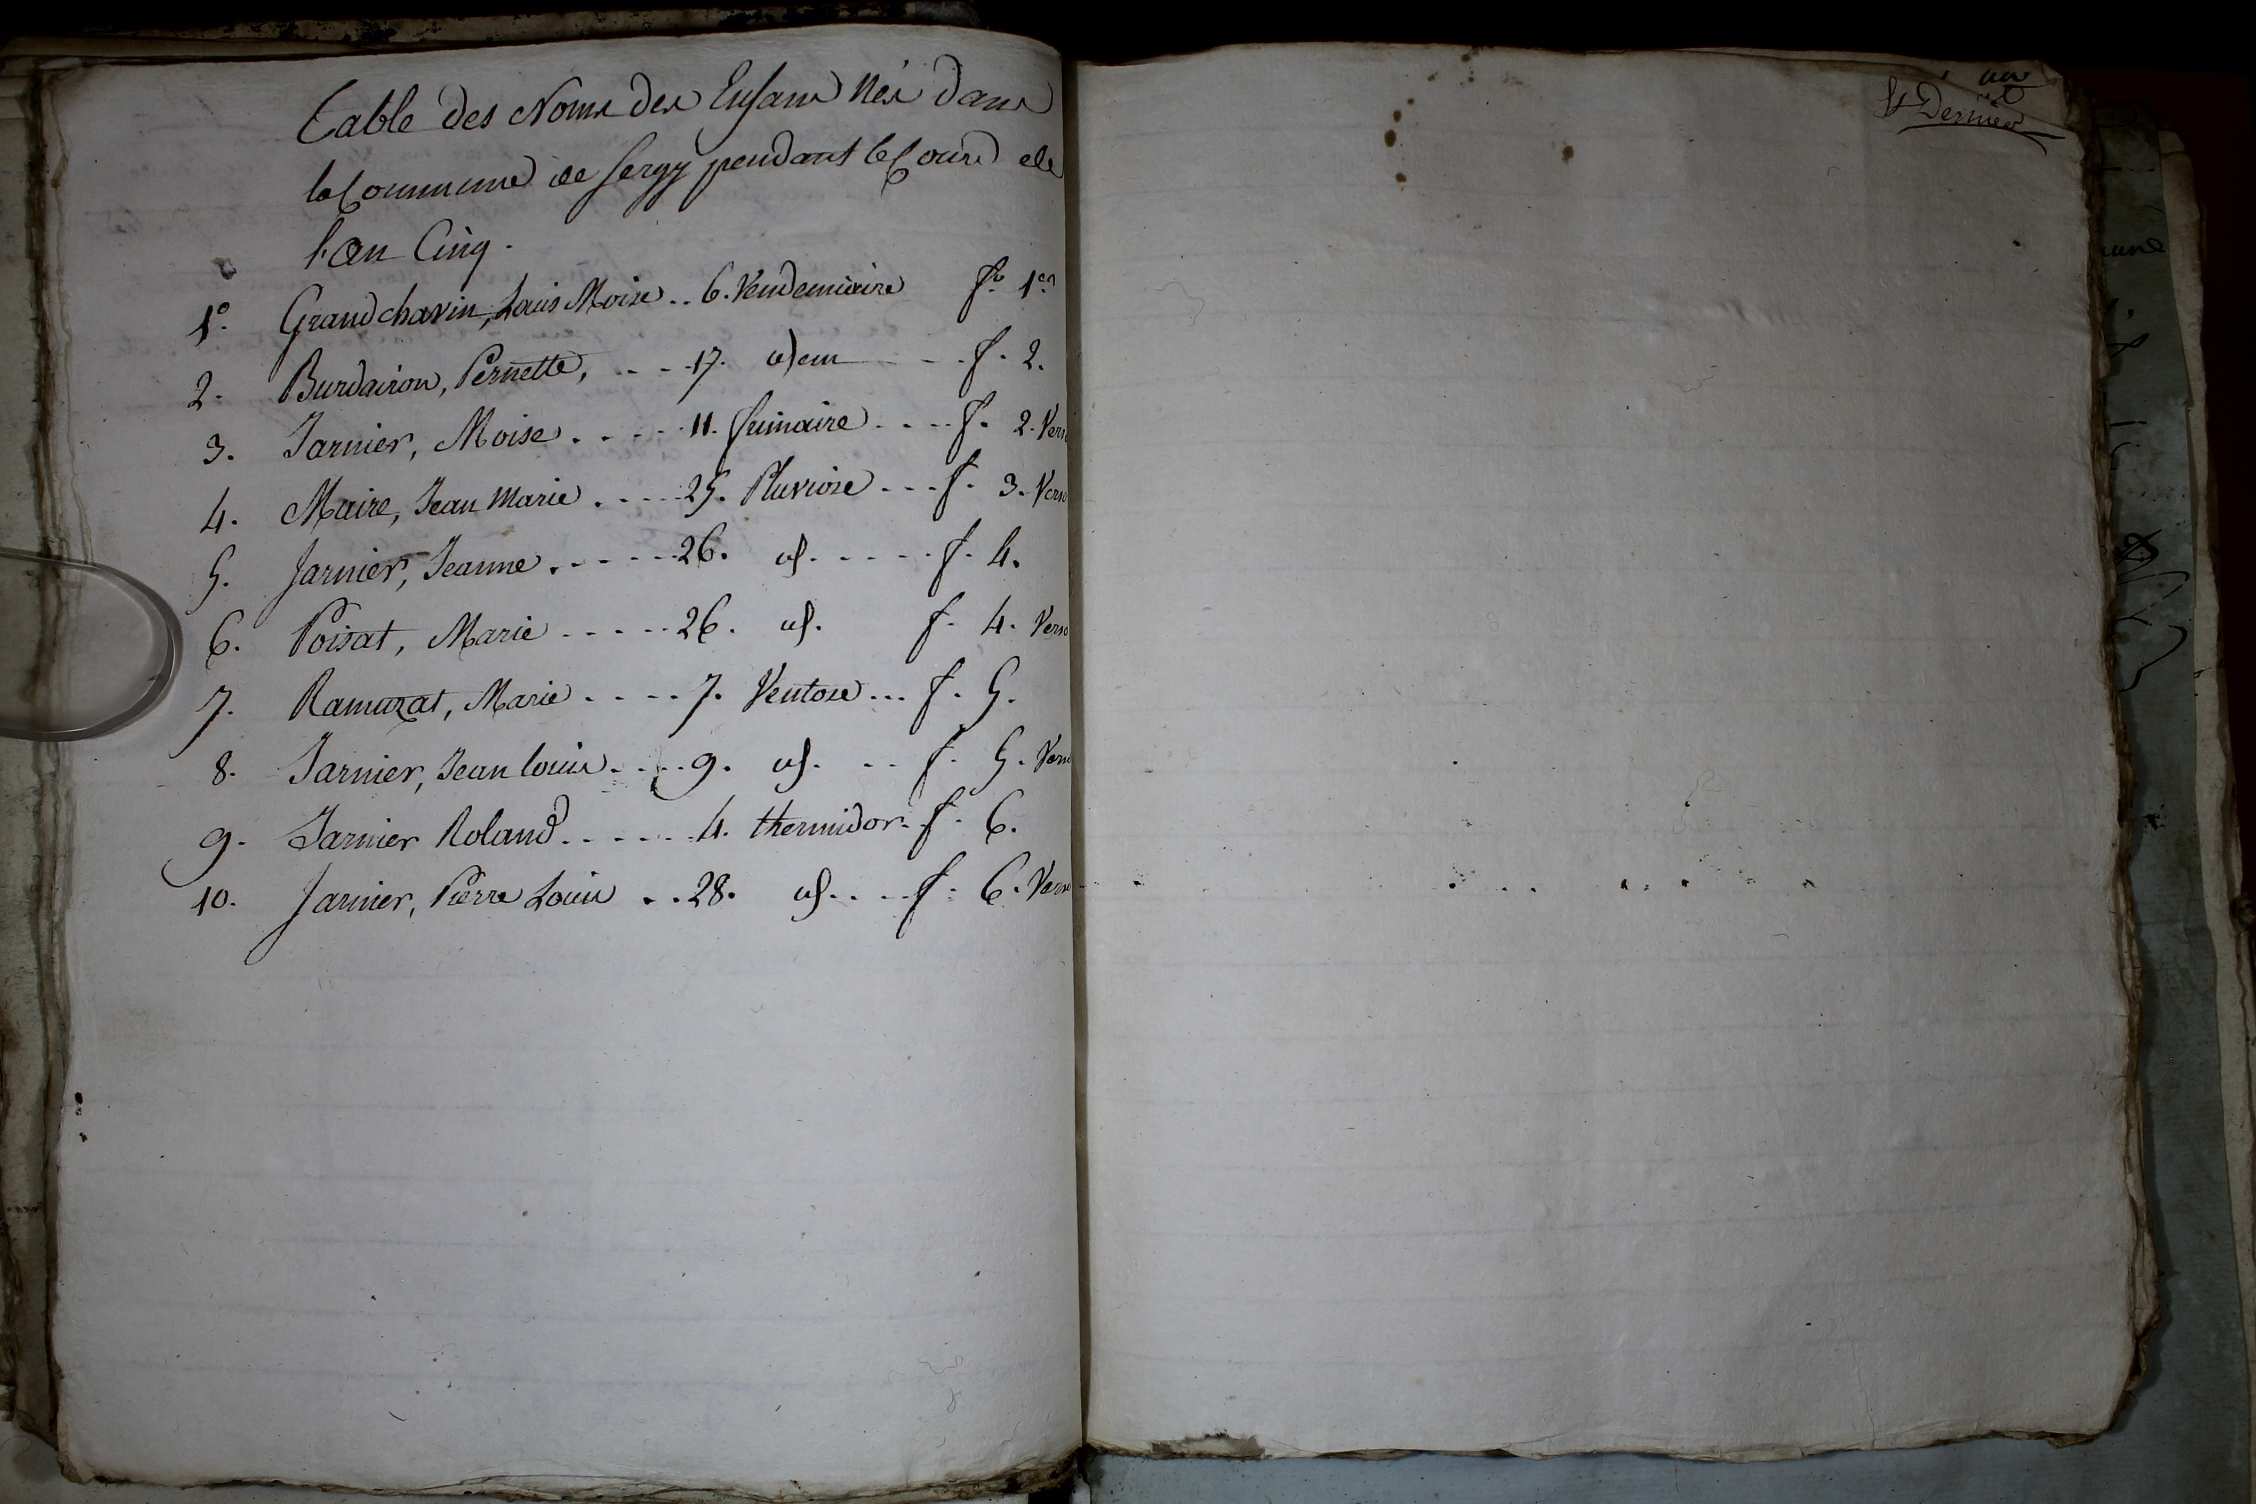 Table des Noms des Enfans Nés dans
la Commune de Sergy pendant le Cours de
l'an Cinq.
1º. Grandchavin, Louis Moise .. 6. Vendemiaire fº. 1er
2. Burdairon, Pernette, ... 17. idem --- f. 2.
3. Jarnier, Moise .... 11. frimaire .... f. 2. Verso
4. Maire, Jean Marie .... 25. Pluviose ... f. 3. Verso
5. Jarnier, Jeanne ..... 26. id. ..... f. 4.
6. Poisat, Marie ..... 26. id. f. 4. Verso
7. Ramazat, Marie .... 7. Ventose ... f. 5.
8. Jarnier, Jean Louis .... 9. id. .. f. 5. Verso
9. Jarnier Roland ..... 4. thermidor. f. 6.
10. Jarnier, Pierre Louis .. 28. id. ... f. 6. Verso
et Dernier